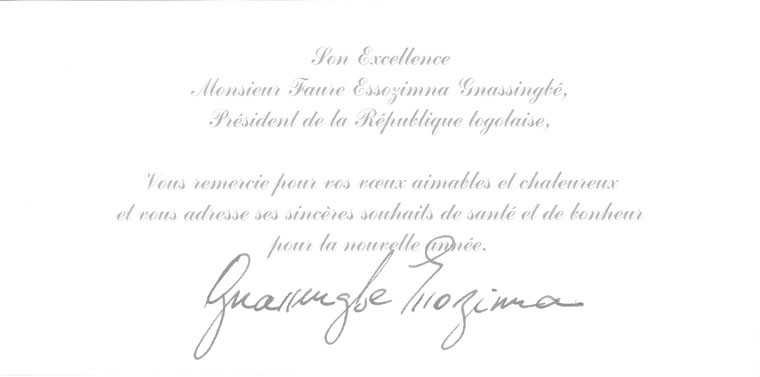 Son Excellence
Monsieur Faure Essozimna Gnassingbé,
Président de la République togolaise,
Vous remercie pour vos vœux aimables et chaleureux
et vous adresse ses sincères souhaits de santé et de bonheur
pour la nouvelle année.
Gnassingbe Essozimna